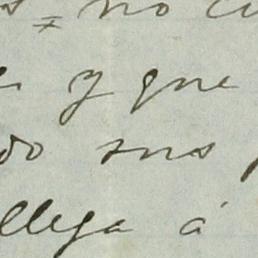 no
y que
do sus
llega á